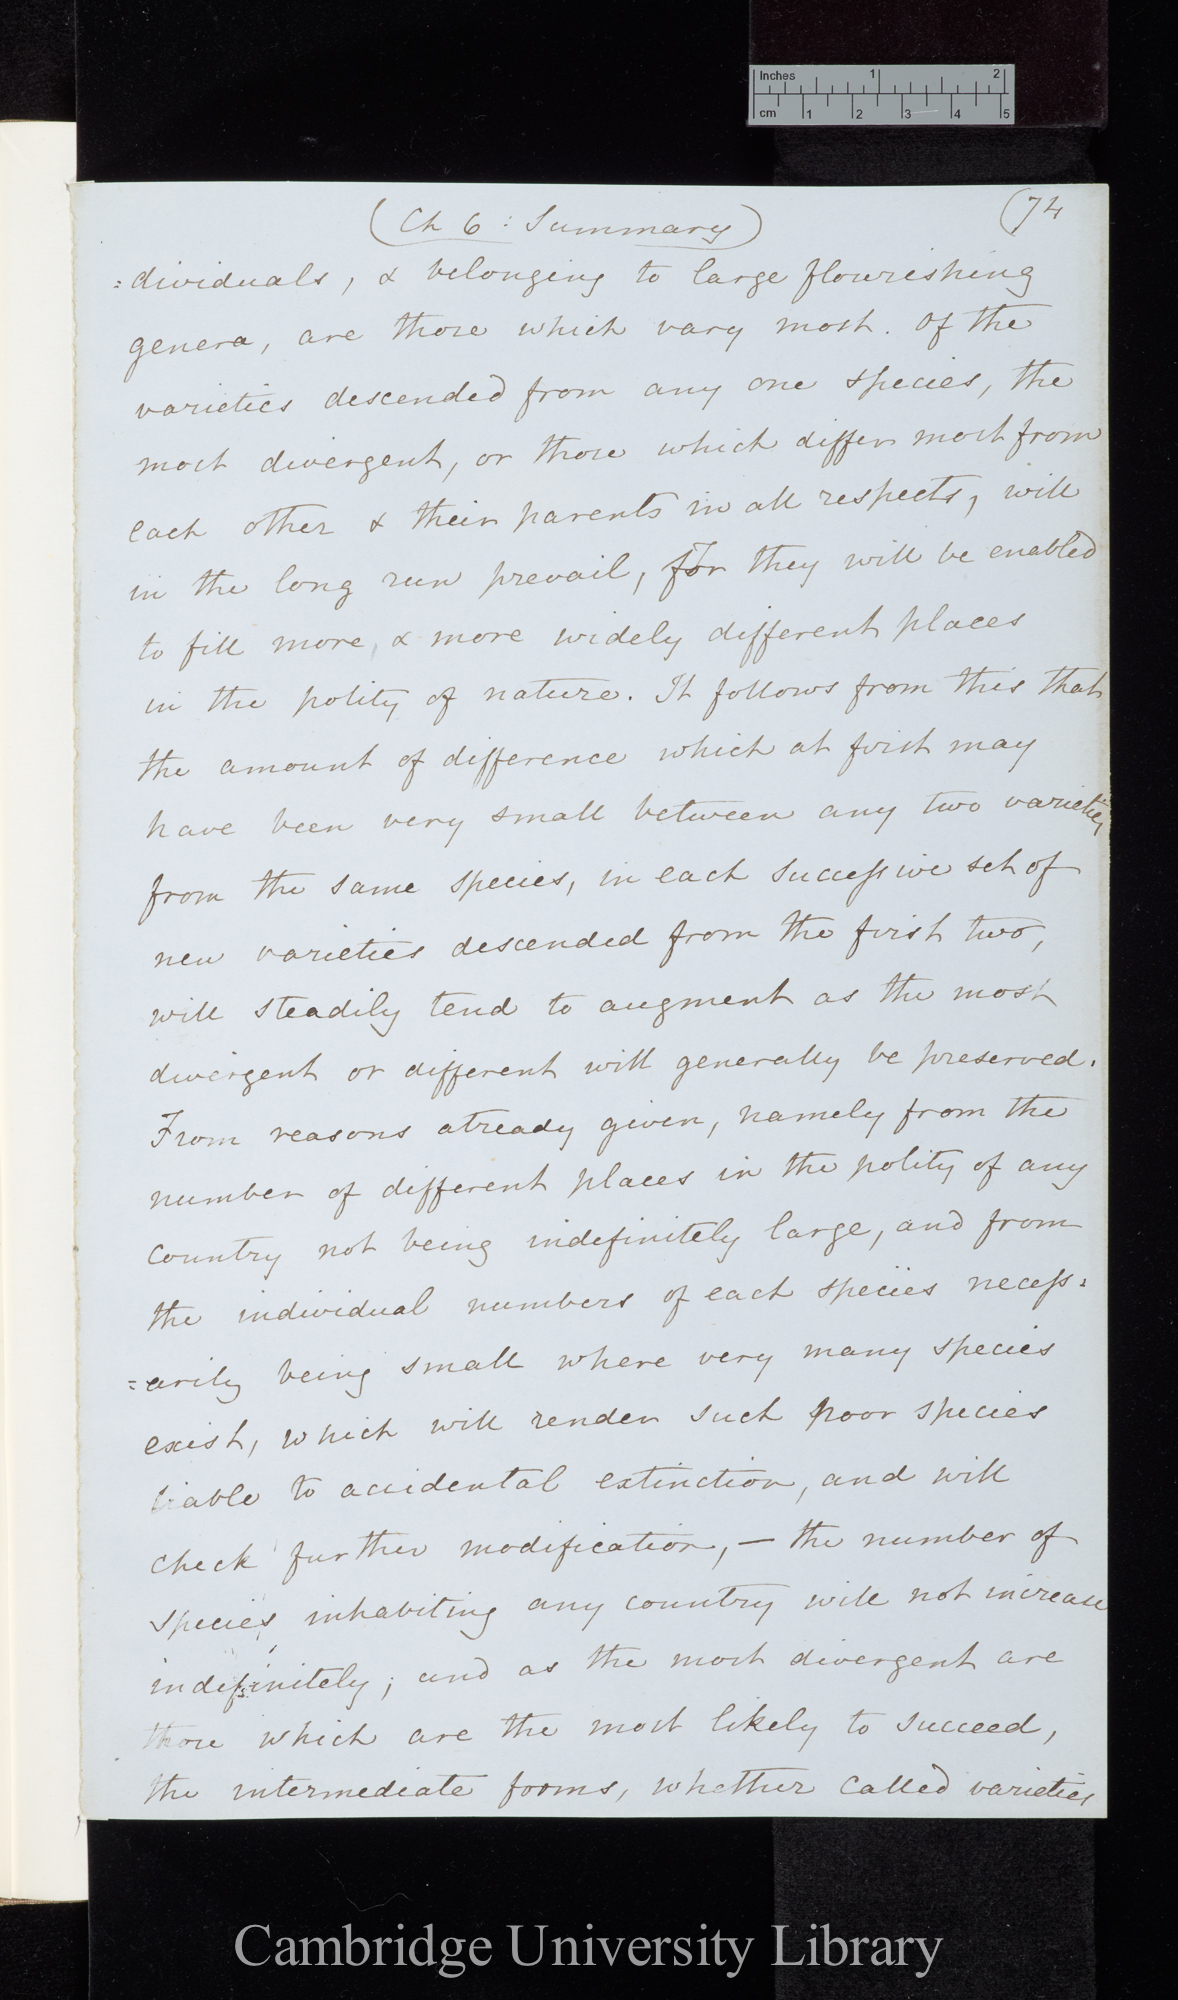 Inches 1 2
cm 1 2 3 4 5
(Ch 6: Summary) (74
=dividuals, & belonging to large flourishing
genera, are those which vary most. Of the
varieties descended from any one species, the
most divergent, or those which differ most from
each other & their parents in all respects, will
in the long run prevail, For they will be enabled
to fill more, & more widely different places
in the polity of nature. It follows from this that
the amount of difference which at first may
have been very small between any two varieties
from the same species, in each successive set of
new varieties descended from the first two,
will steadily tend to augment as the most
divergent or different will generally be preserved.
From reasons already given, namely from the
number of different places in the polity of any
country not being indefinitely large, and from
the individual numbers of each species necess=
=arily being small where very many species
exist, which will render such poor species
liable to accidental extinction, and will
check further modification, — the number of
species inhabiting any country will not increase
indefinitely; and as the most divergent are
those which are the most likely to succeed,
the intermediate forms, whether called varieties
Cambridge University Library